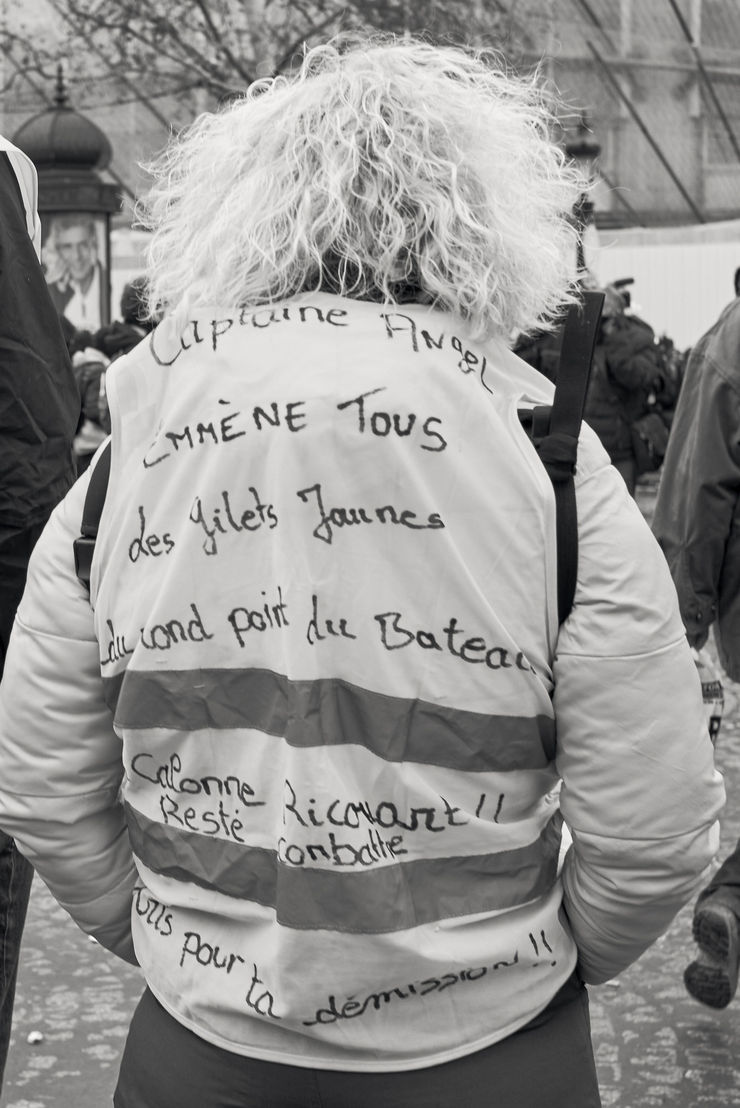 Captaine Angel
EMMÈNE TOUS
des gilets Jaunes
du rond point du Bateau
Calonne Ricouart !!
Resté combattre
Tous pour ta démission !!